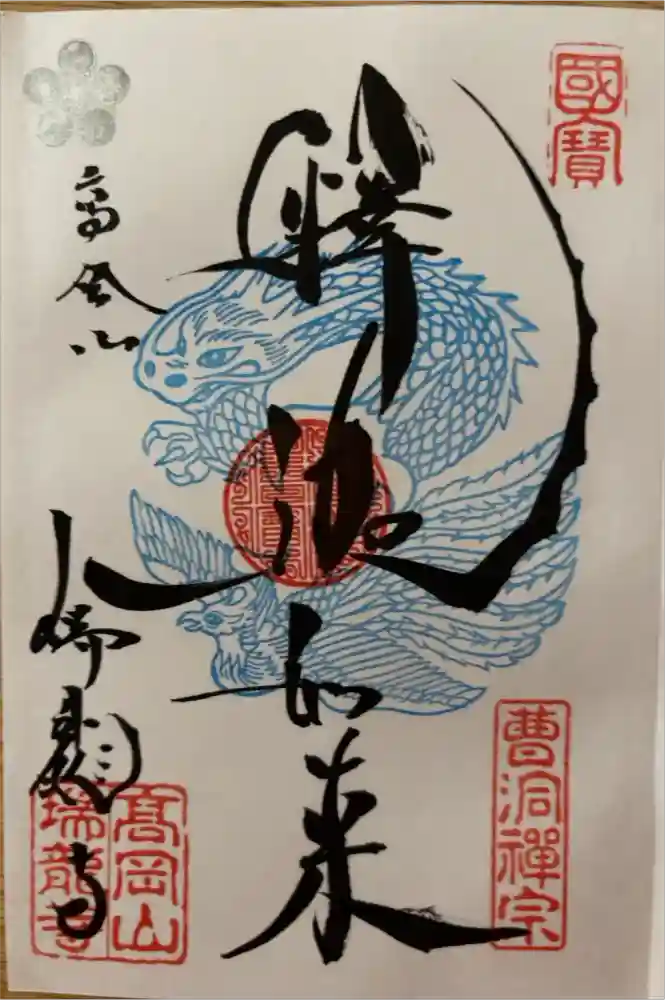 國寶
釋迦如来
曹洞禪宗
高岡山
瑞龍寺
高岡山
瑞龍寺